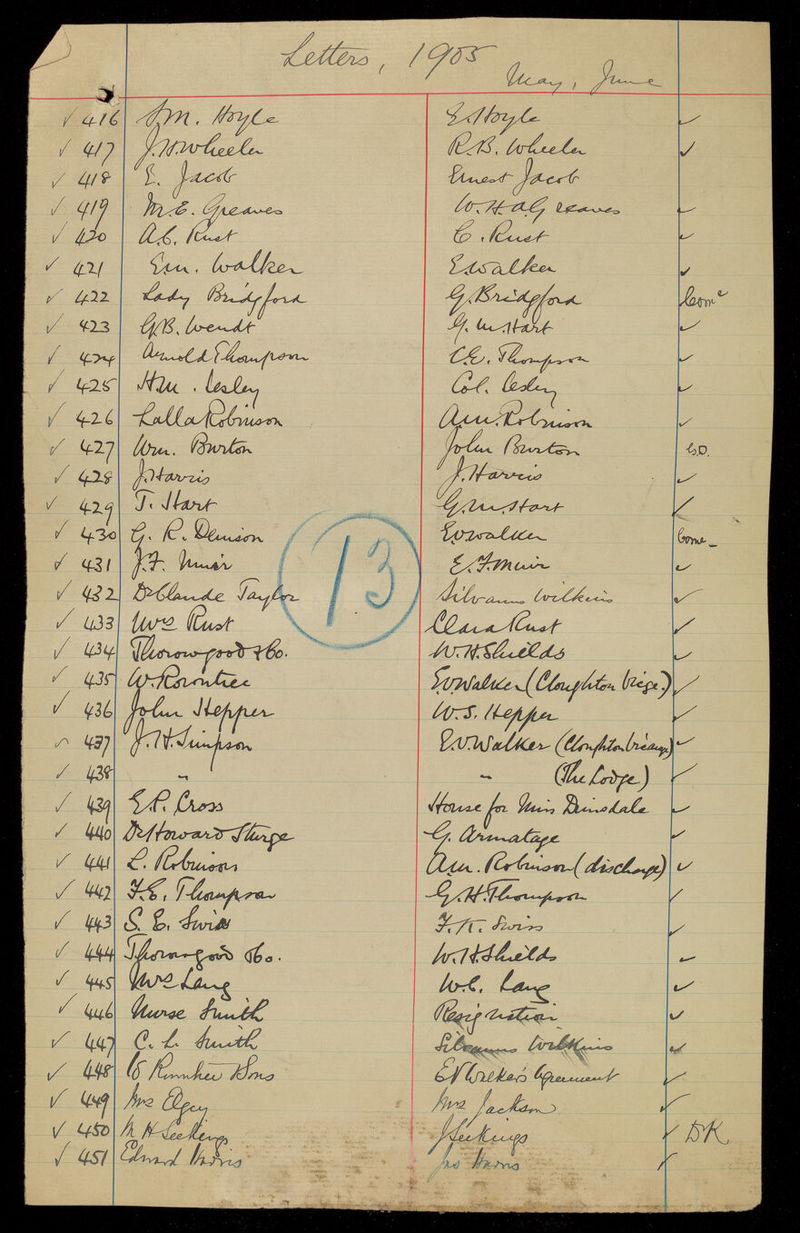 Letters, 1905
May, June
✓ 416 S.M. Hoyle E. Hoyle ✓
✓ 417 J.H. Wheeler R.B. Wheeler ✓
✓ 418 E. Jacob Ernest Jacob
✓ 419 M.E. Greaves W.H.A. Greaves ✓
✓ 420 A.C. Rust C. Rust ✓
✓ 421 Em. Walker E. Walker ✓
✓ 422 Lady Bridgford G. Bridgford Come
✓ 423 G.B. Wendt G.M. Hart ✓
✓ 424 Arnold Thompson C.E. Thompson ✓
✓ 425 H.M. Lesley Col. Lesley ✓
✓ 426 Lalla Robinson A.M. Robinson ✓
✓ 427 Wm. Burton John Burton
✓ 428 J. Harris J. Harris ✓
✓ 429 T. Hart G.M. Hart ✓
✓ 430 G.R. Denison E.V. Walker Come
✓ 431 J.F. Muir E.F. Muir ✓
✓ 432 Dr Claude Taylor Silvanus Wilkins ✓
✓ 433 Mrs Rust Clara Rust ✓
✓ 434 Thorowgood & Co. W.H. Shields ✓
✓ 435 W. Rowntree E.V. Walker (Cloughton Vicge.) ✓
✓ 436 John Hepper W.S. Hepper ✓
✓ 437 J.H. Simpson E.V. Walker (Cloughton Vicarage) ✓
✓ 438 " " (The Lodge) ✓
✓ 439 E.P. Cross House for Miss Dimsdale ✓
✓ 440 Dr Howard Sturge G. Armatage ✓
✓ 441 L. Robinson A.M. Robinson (discharge) ✓
✓ 442 F.E. Thompson G.H. Thompson ✓
✓ 443 S.E. Swiss F.K. Swiss ✓
✓ 444 Thorowgood & Co. W.H. Shields ✓
✓ 445 Mrs Lang W.C. Lang ✓
✓ 446 Nurse Smith Resignation ✓
✓ 447 C.L. Smith Silvanus Wilkins ✓
✓ 448 W Rowntree & Sons EV Walker's Agreement ✓
✓ 449 Mrs Elgey Mrs Jackson ✓
✓ 450 M H Seekings J Seekings ✓ DK
✓ 451 Edward Harris Jas Harris ✓
13